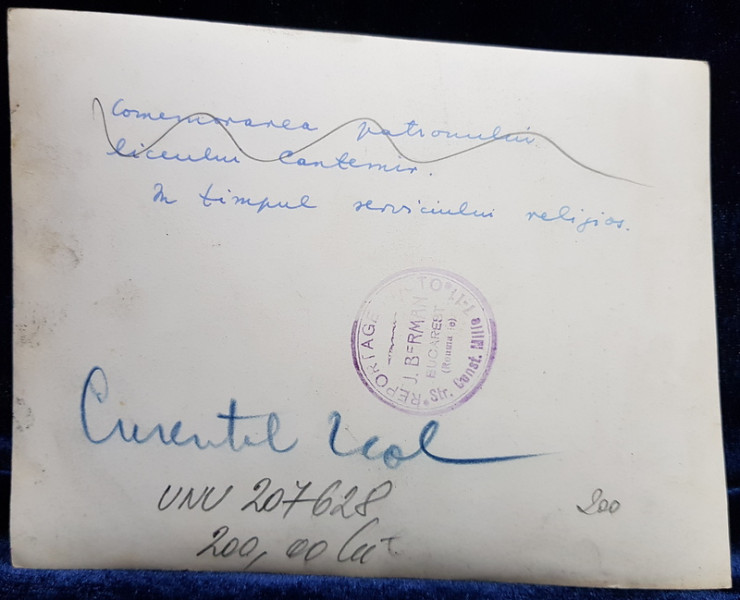 Comemorarea patronului
liceului Cantemir.
In timpul serviciului religios.
REPORTAGE TO
J. BERMAN
BUCAREST
Str. Const. Mille 7-11
Curentul
UNU 207628
200
200,00 Lei